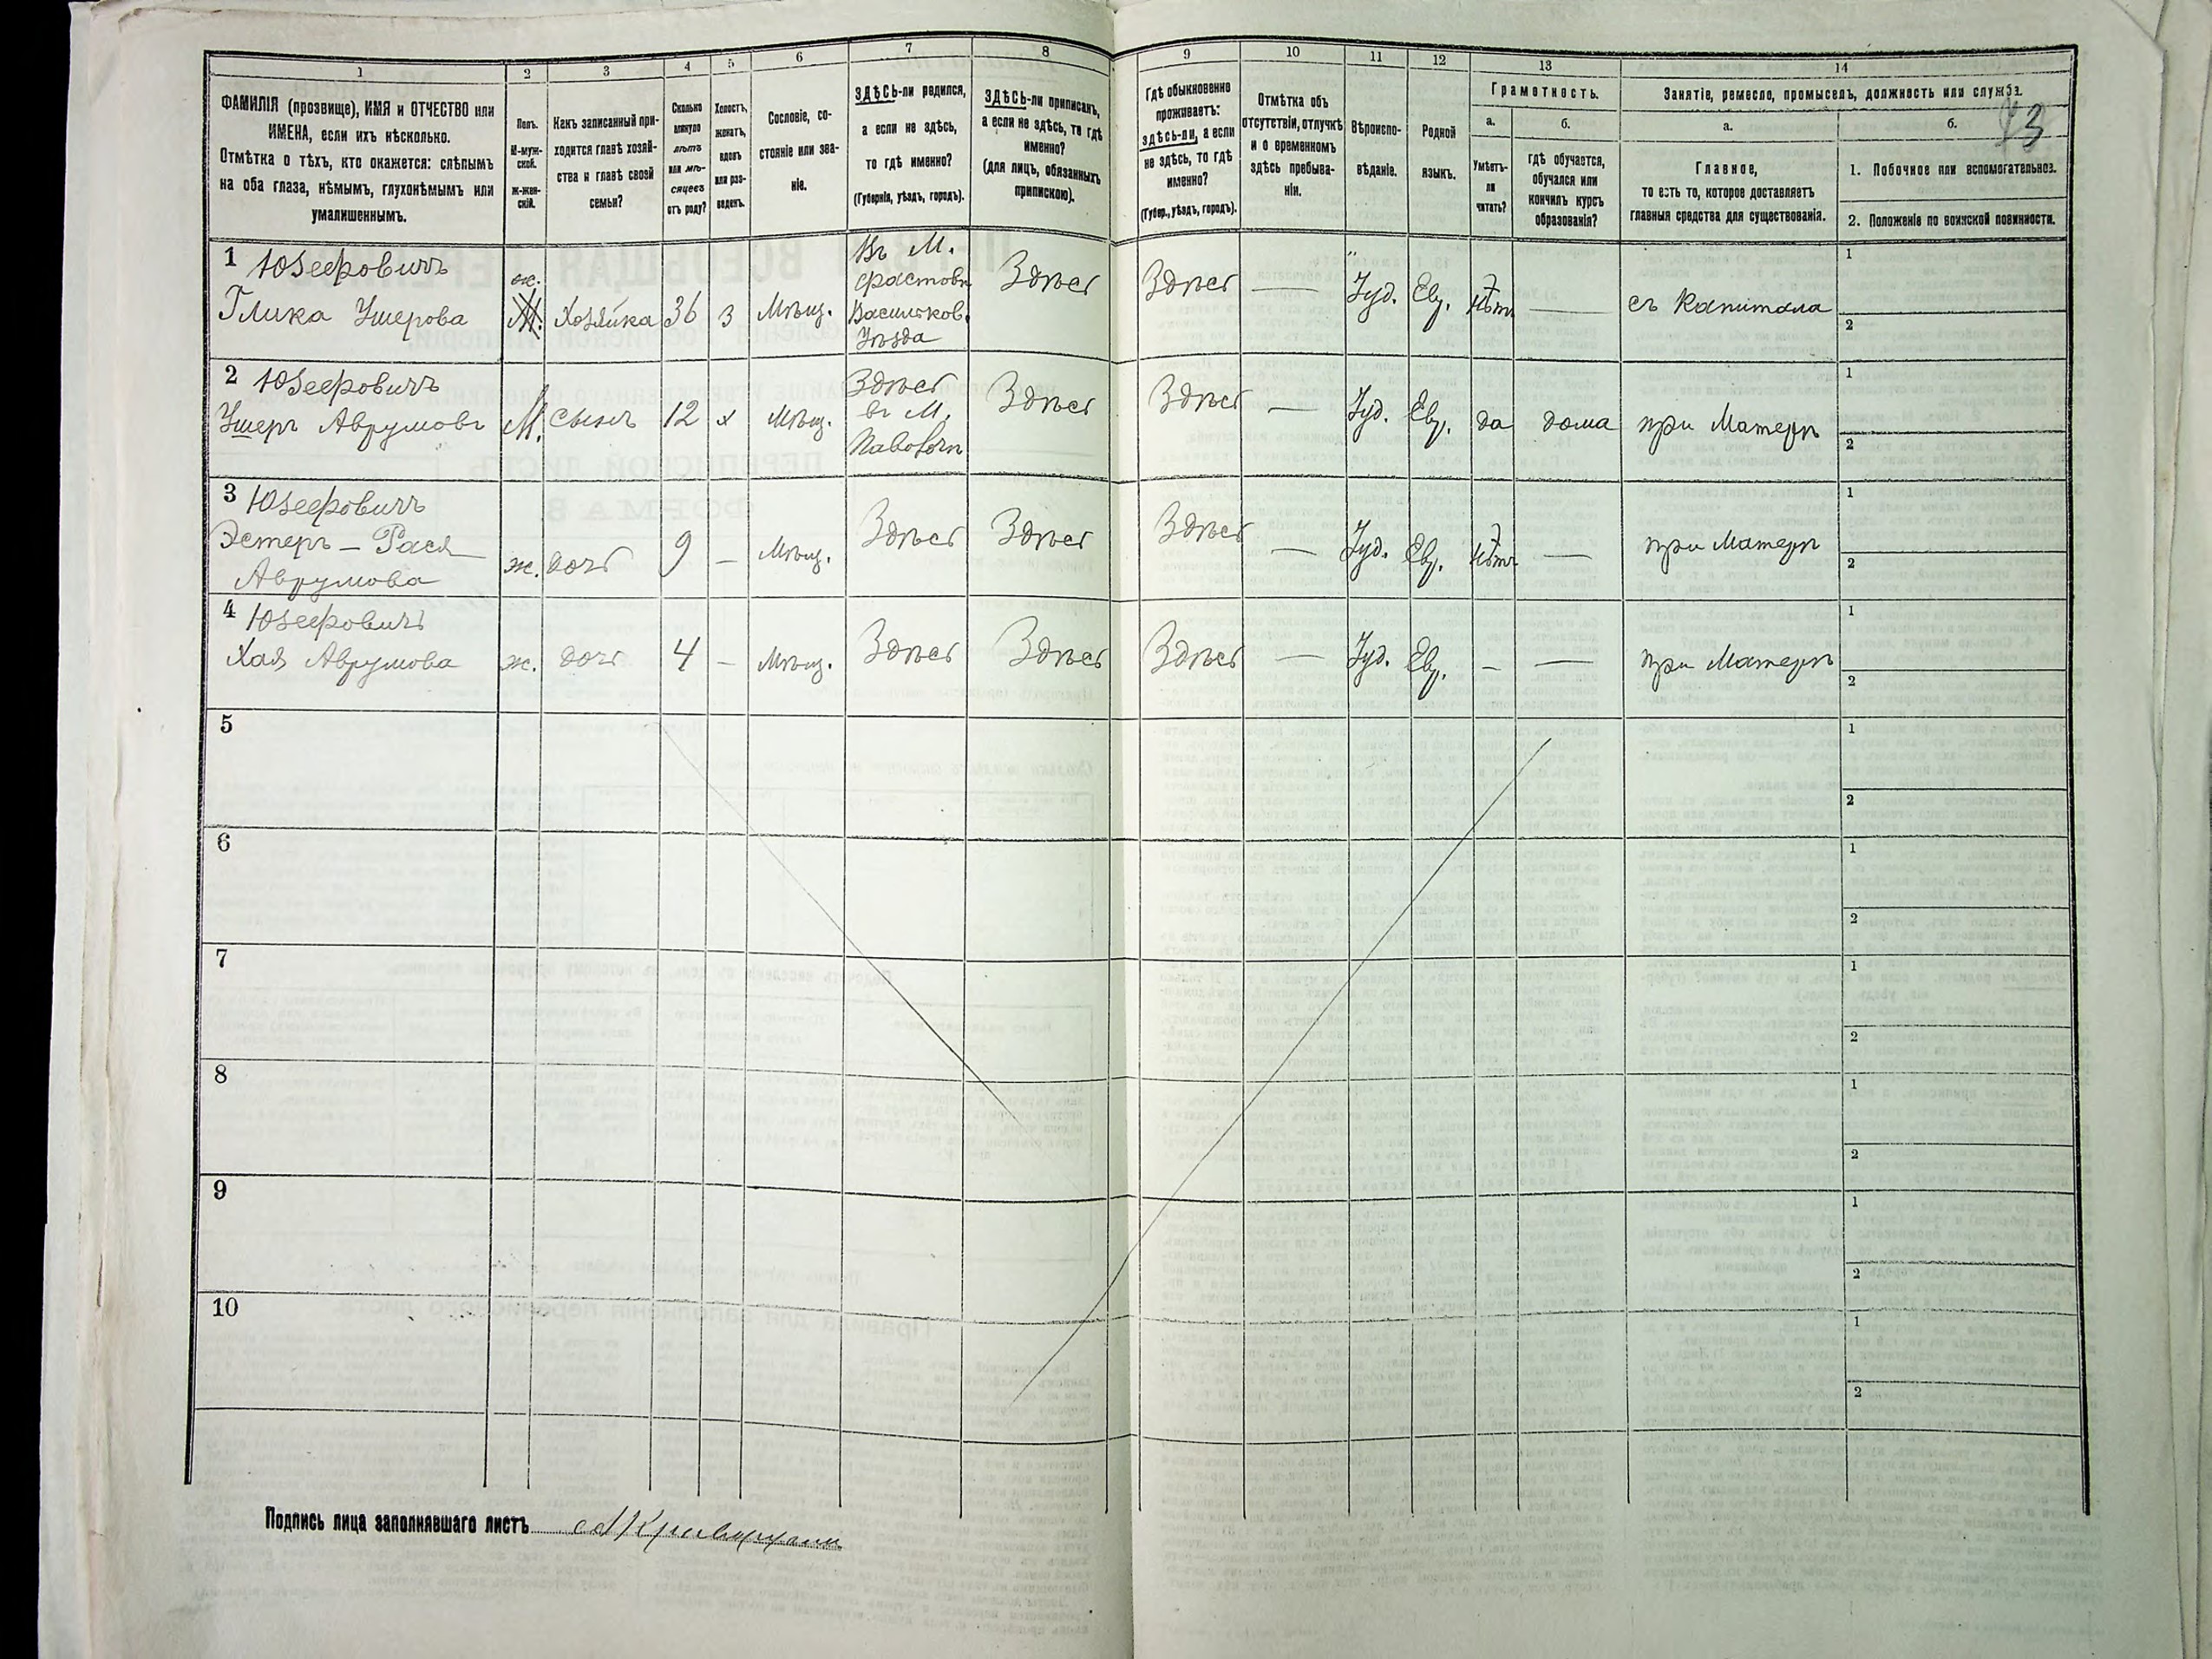 1 2 3 4 5 6 7 8 9 10 11 12 13 14
ФАМИЛІЯ (прозвище), ИМЯ и ОТЧЕСТВО или
ИМЕНА, если ихъ нѣсколько.
Отмѣтка о тѣхъ, кто окажется: слѣпымъ
на оба глаза, нѣмымъ, глухонѣмымъ или
умалишеннымъ.
Полъ.
М-муж-
ской.
Ж-жен-
скій.
Какъ записанный при-
ходится главѣ хозяй-
ства и главѣ своей
семьи?
Сколько
минуло
лѣтъ
или мѣ-
сяцевъ
отъ роду?
Холостъ,
женатъ,
вдовъ
или раз-
веденъ.
Сословіе, со-
стояніе или зва-
ніе.
ЗДѢСЬ-ли родился,
а если не здѣсь,
то гдѣ именно?
(Губернія, уѣздъ, городъ).
ЗДѢСЬ-ли приписанъ,
а если не здѣсь, то гдѣ
именно?
(для лицъ, обязанныхъ
припискою).
Гдѣ обыкновенно
проживаетъ:
здѣсь-ли, а если
не здѣсь, то гдѣ
именно?
(Губер., уѣздъ, городъ).
Отмѣтка объ
отсутствіи, отлучкѣ
и о временномъ
здѣсь пребыва-
ніи.
Вѣроиспо-
вѣданіе.
Родной
языкъ.
Грамотность.
а.
Умѣетъ-
ли
читать?
б.
гдѣ обучается,
обучался или
кончилъ курсъ
образованія?
Занятіе, ремесло, промыселъ, должность или служба.
а.
Главное,
то есть то, которое доставляетъ
главныя средства для существованія.
б.
1. Побочное или вспомогательное.
2. Положеніе по воинской повинности.
1 Юзефовичъ
Глика Ушерова
ж.
М.
Хозяйка
36
з
Мѣщ.
Въ М.
Фастовѣ
Васильков.
Уѣзда
Здѣсь
Здѣсь
—
Іуд.
Евр.
нѣтъ
—
съ Капитала
1
2
2 Юзефовичъ
Ушеръ Аврумовъ
М.
сынъ
12
х
Мѣщ.
Здѣсь
въ М.
Здѣсь
Здѣсь
—
Іуд.
Евр.
да
дома
при Матери
1
2
3 Юзефовичъ
Эстеръ - Рася
Аврумова
ж.
дочь
9
—
Мѣщ.
Здѣсь
Здѣсь
Здѣсь
—
Іуд.
Евр.
нѣтъ
—
при Матери
1
2
4 Юзефовичъ
Хая Аврумова
ж.
дочь
4
—
Мѣщ.
Здѣсь
Здѣсь
Здѣсь
—
Іуд.
Евр.
—
—
при Матери
1
2
5
1
2
6
1
2
7
1
2
8
1
2
9
1
2
10
1
2
Подпись лица заполнявшаго листъ